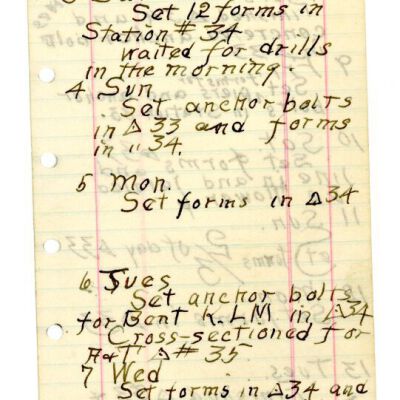 Set 12 forms in
Station # 34
waited for drills
in the morning.
4 Sun
Set anchor bolts
in Δ 33 and forms
in " 34.
5 Mon.
Set forms in Δ34
6 Tues
Set anchor bolts
for Bent K.L.M in Δ34
Cross-sectioned for
Δ# 35
7 Wed
Set forms in Δ34 and